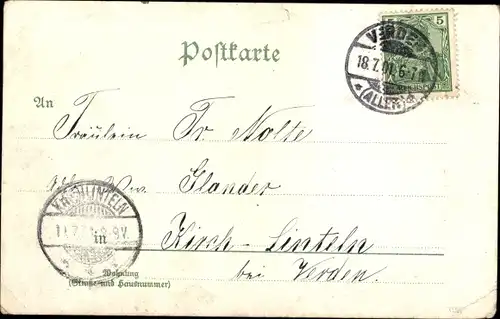 Postkarte
5
VERDEN
18.7.01. 6-7 N.
* (ALLER) *
An
Fräulein Fr. Nolte
Glander
KIRCHLINTELN
8-9V.
in
Kirch-Linteln
bei Verden.
Wohnung
(Straße und Hausnummer)